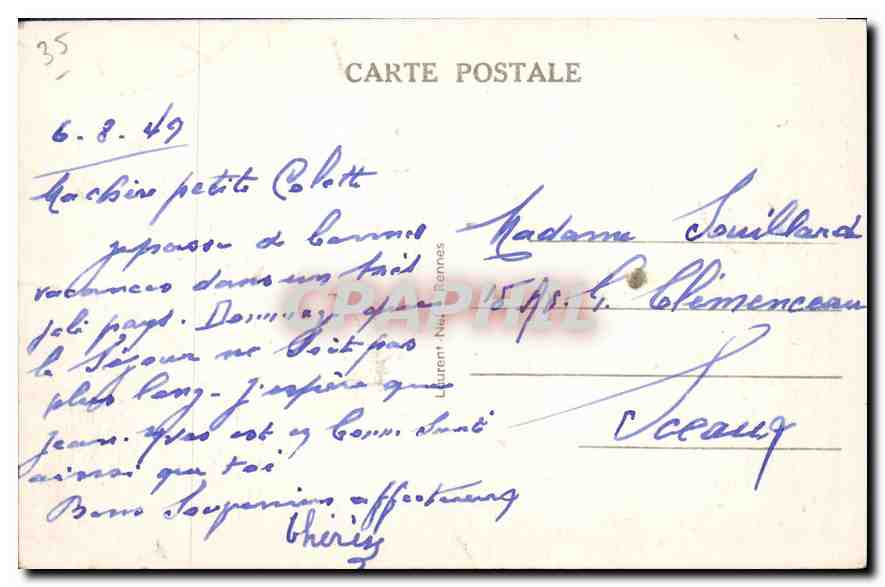 35
CARTE POSTALE
6-8-49
Ma chère petite Colette
je passe de bonnes
vacances dans un très
joli pays. Dommage que
le Séjour ne Soit pas
plus long - j'espère que
Jean-Yves est en bonne Santé
ainsi que toi
Bons Souvenirs affectueux
Thérèse
Madame Souillard
G. Clémenceau
Sceaux
Laurent-Nel Rennes
CPARPHIL